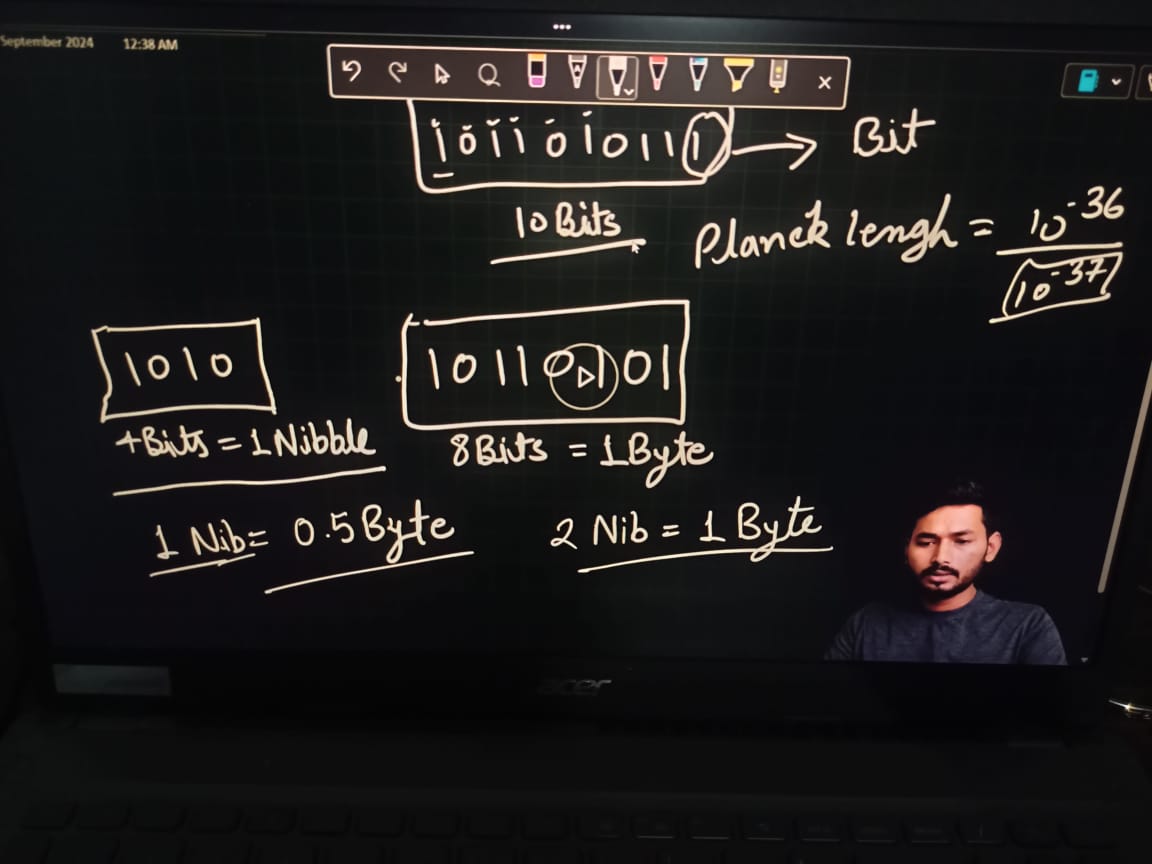 September 2024 12:38 AM
1011010111 → Bit
10 Bits
Planck lengh = 10^-36
10^-37
1010
10110101
4 Bits = 1 Nibble
8 Bits = 1 Byte
1 Nib = 0.5 Byte
2 Nib = 1 Byte
acer